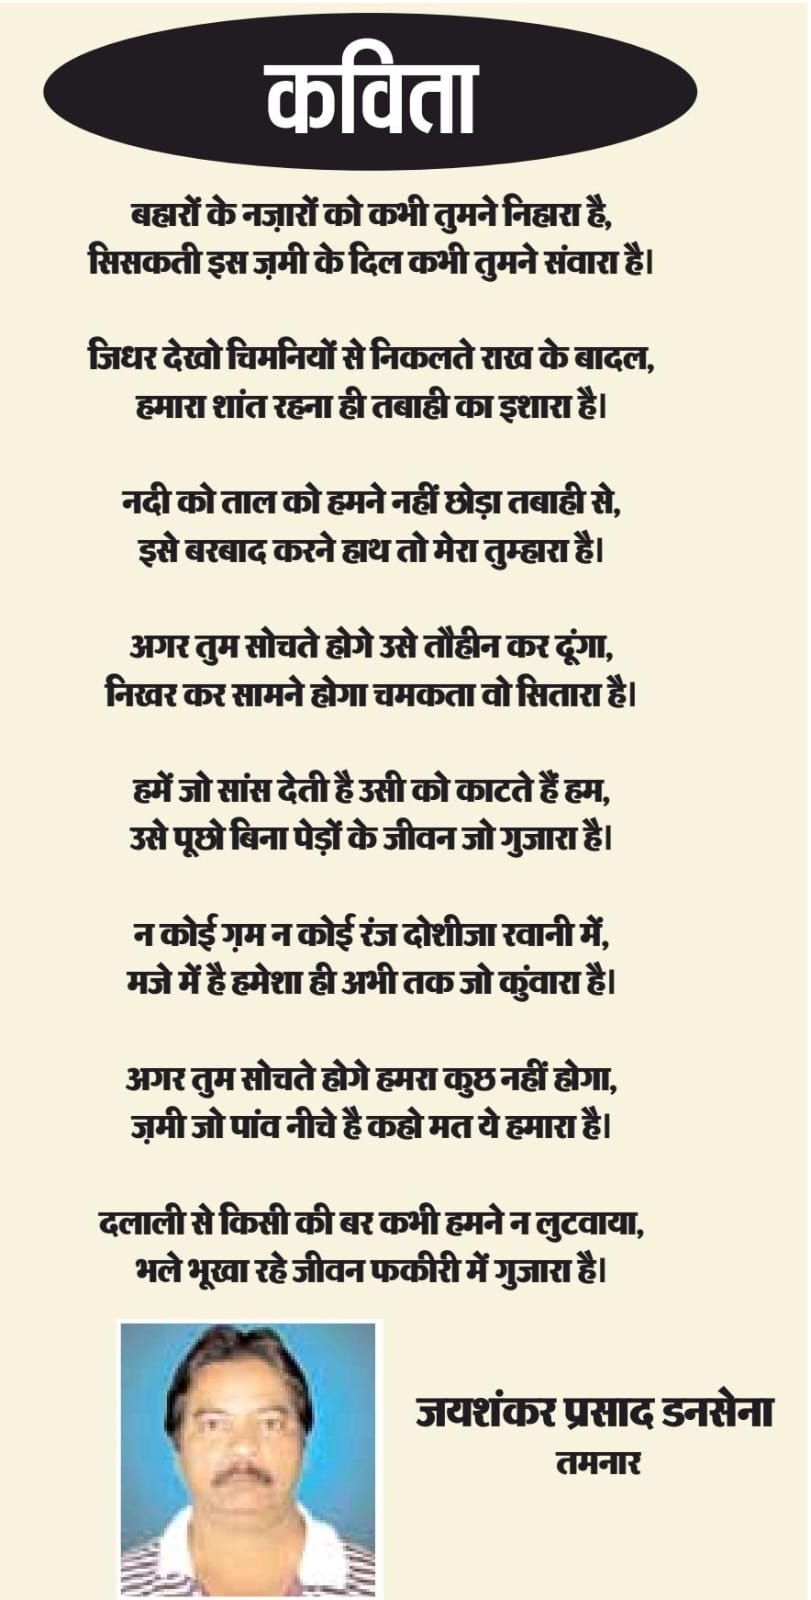 कविता
बहारों के नज़ारों को कभी तुमने निहारा है,
सिसकती इस ज़मी के दिल कभी तुमने संवारा है।
जिधर देखो चिमनियों से निकलते राख के बादल,
हमारा शांत रहना ही तबाही का इशारा है।
नदी को ताल को हमने नहीं छोड़ा तबाही से,
इसे बरबाद करने हाथ तो मेरा तुम्हारा है।
अगर तुम सोचते होगे उसे तौहीन कर दूंगा,
निखर कर सामने होगा चमकता वो सितारा है।
हमें जो सांस देती है उसी को काटते हैं हम,
उसे पूछो बिना पेड़ों के जीवन जो गुजारा है।
न कोई ग़म न कोई रंज दोशीजा रवानी में,
मजे में है हमेशा ही अभी तक जो कुंवारा है।
अगर तुम सोचते होगे हमरा कुछ नहीं होगा,
ज़मी जो पांव नीचे है कहो मत ये हमारा है।
दलाली से किसी की बर कभी हमने न लुटवाया,
भले भूखा रहे जीवन फकीरी में गुजारा है।
जयशंकर प्रसाद डनसेना
तमनार